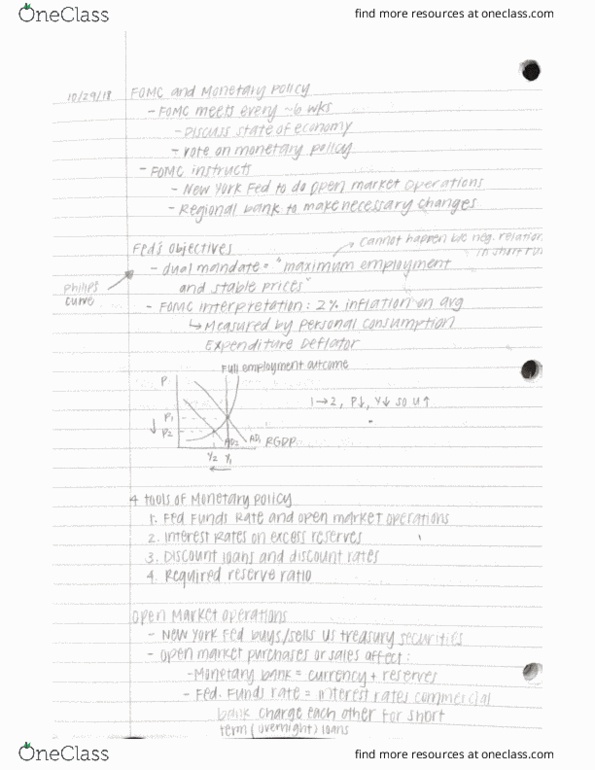 OneClass
find more resources at oneclass.com
10/29/18 FOMC and Monetary Policy
- FOMC meets every ~6 wks
- Discuss state of economy
- vote on monetary policy
- FOMC instructs
- New York Fed to do open market operations
- Regional bank to make necessary changes
Fed's objectives
cannot happen b/c neg. relation
in short run
- dual mandate = "maximum employment
and stable prices"
Philips
curve
- FOMC interpretation: 2% inflation on avg
↳ Measured by personal consumption
Expenditure Deflator
Full employment outcome
P
1→2, P↓, Y↓ so U↑
P1
↓ P2
AD2 AD1 RGDP
Y2 Y1
←
4 tools of Monetary policy
1. Fed Funds Rate and open market operations
2. Interest Rates on excess reserves
3. Discount loans and discount rates
4. Required reserve ratio
Open Market operations
- New York Fed buys/sells US treasury securities
- open market purchases or sales affect:
- Monetary bank = currency + reserves
- Fed. Funds rate = interest rates commercial
bank charge each other for short
term (overnight) loans
OneClass
find more resources at oneclass.com